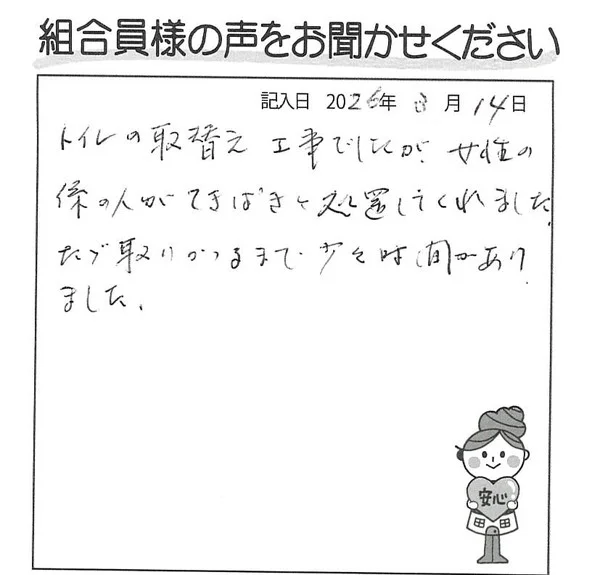 組合員様の声をお聞かせください
記入日 2026年 3月 14日
トイレの取替え工事でしたが、女性の
係の人がてきぱきと処置してくれました。
ただ取りかかるまで少々時間があり
ました。
安心